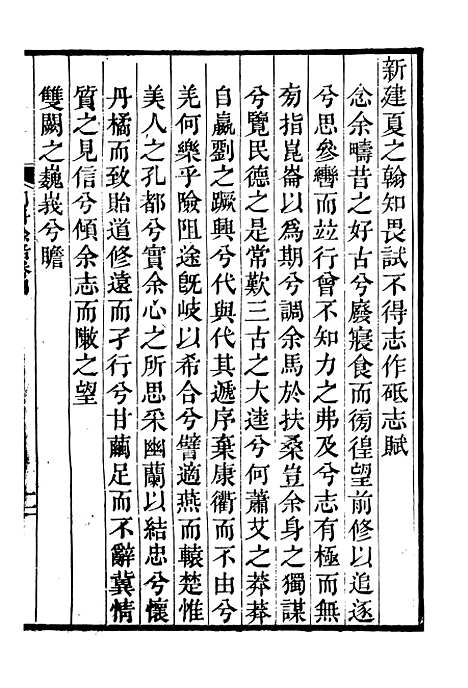 新建夏之翰知畏試不得志作砥志賦
念余疇昔之好古兮廢寢食而徬徨望前修以追逐
兮思參轡而竝行曾不知力之弗及兮志有極而無
方指崑崙以為期兮調余馬於扶桑豈余身之獨謀
兮覽民德之是常歎三古之大逵兮何蕭艾之莽莽
自嬴劉之蹶興兮代與代其遞序棄康衢而不由兮
羌何樂乎險阻途旣岐以希合兮譬適燕而轅楚惟
美人之孔都兮實余心之所思采幽蘭以結忠兮懷
丹橘而致貽道修遠而孑行兮甘繭足而不辭冀情
質之見信兮傾余志而敶之望
雙闕之巍峩兮瞻